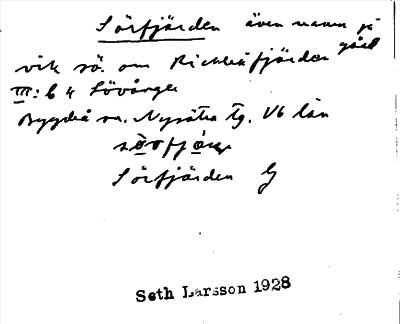 Sörfjärden även namn på gård
vik sö. om Rickleåfjärden
III: 6 4 Lövånger
Bygdeå sn. Nysätra tg. Vb län
Sörfjärden G
Seth Larsson 1928